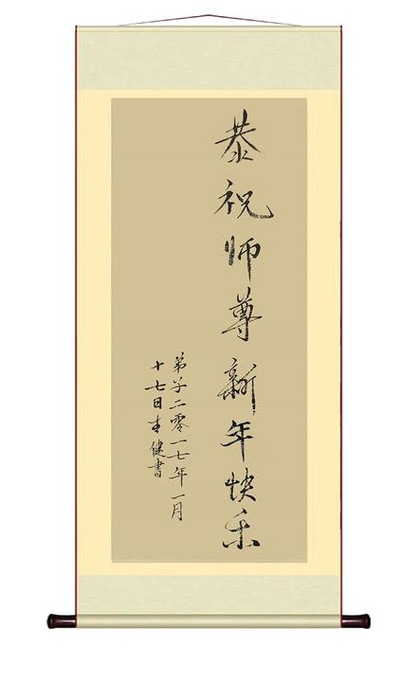 恭祝师尊新年快乐
弟子二零一七年一月
十七日健書